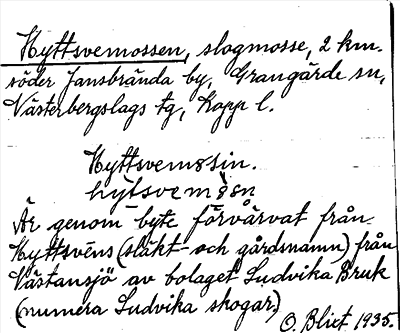 Hyttsvemossen, slogmosse, 2 km.
söder Jansbrända by, Grangärde sn,
Västerbergslags tg, Kopp l.
Hyttsvemosin.
hytsvemòsn
Är genom byte förvärvat från
Hyttsvēns (släkt- och gårdsnamn) från
Västansjö av bolaget Ludvika Bruk
(numera Ludvika skogar)
O. Blixt 1935.